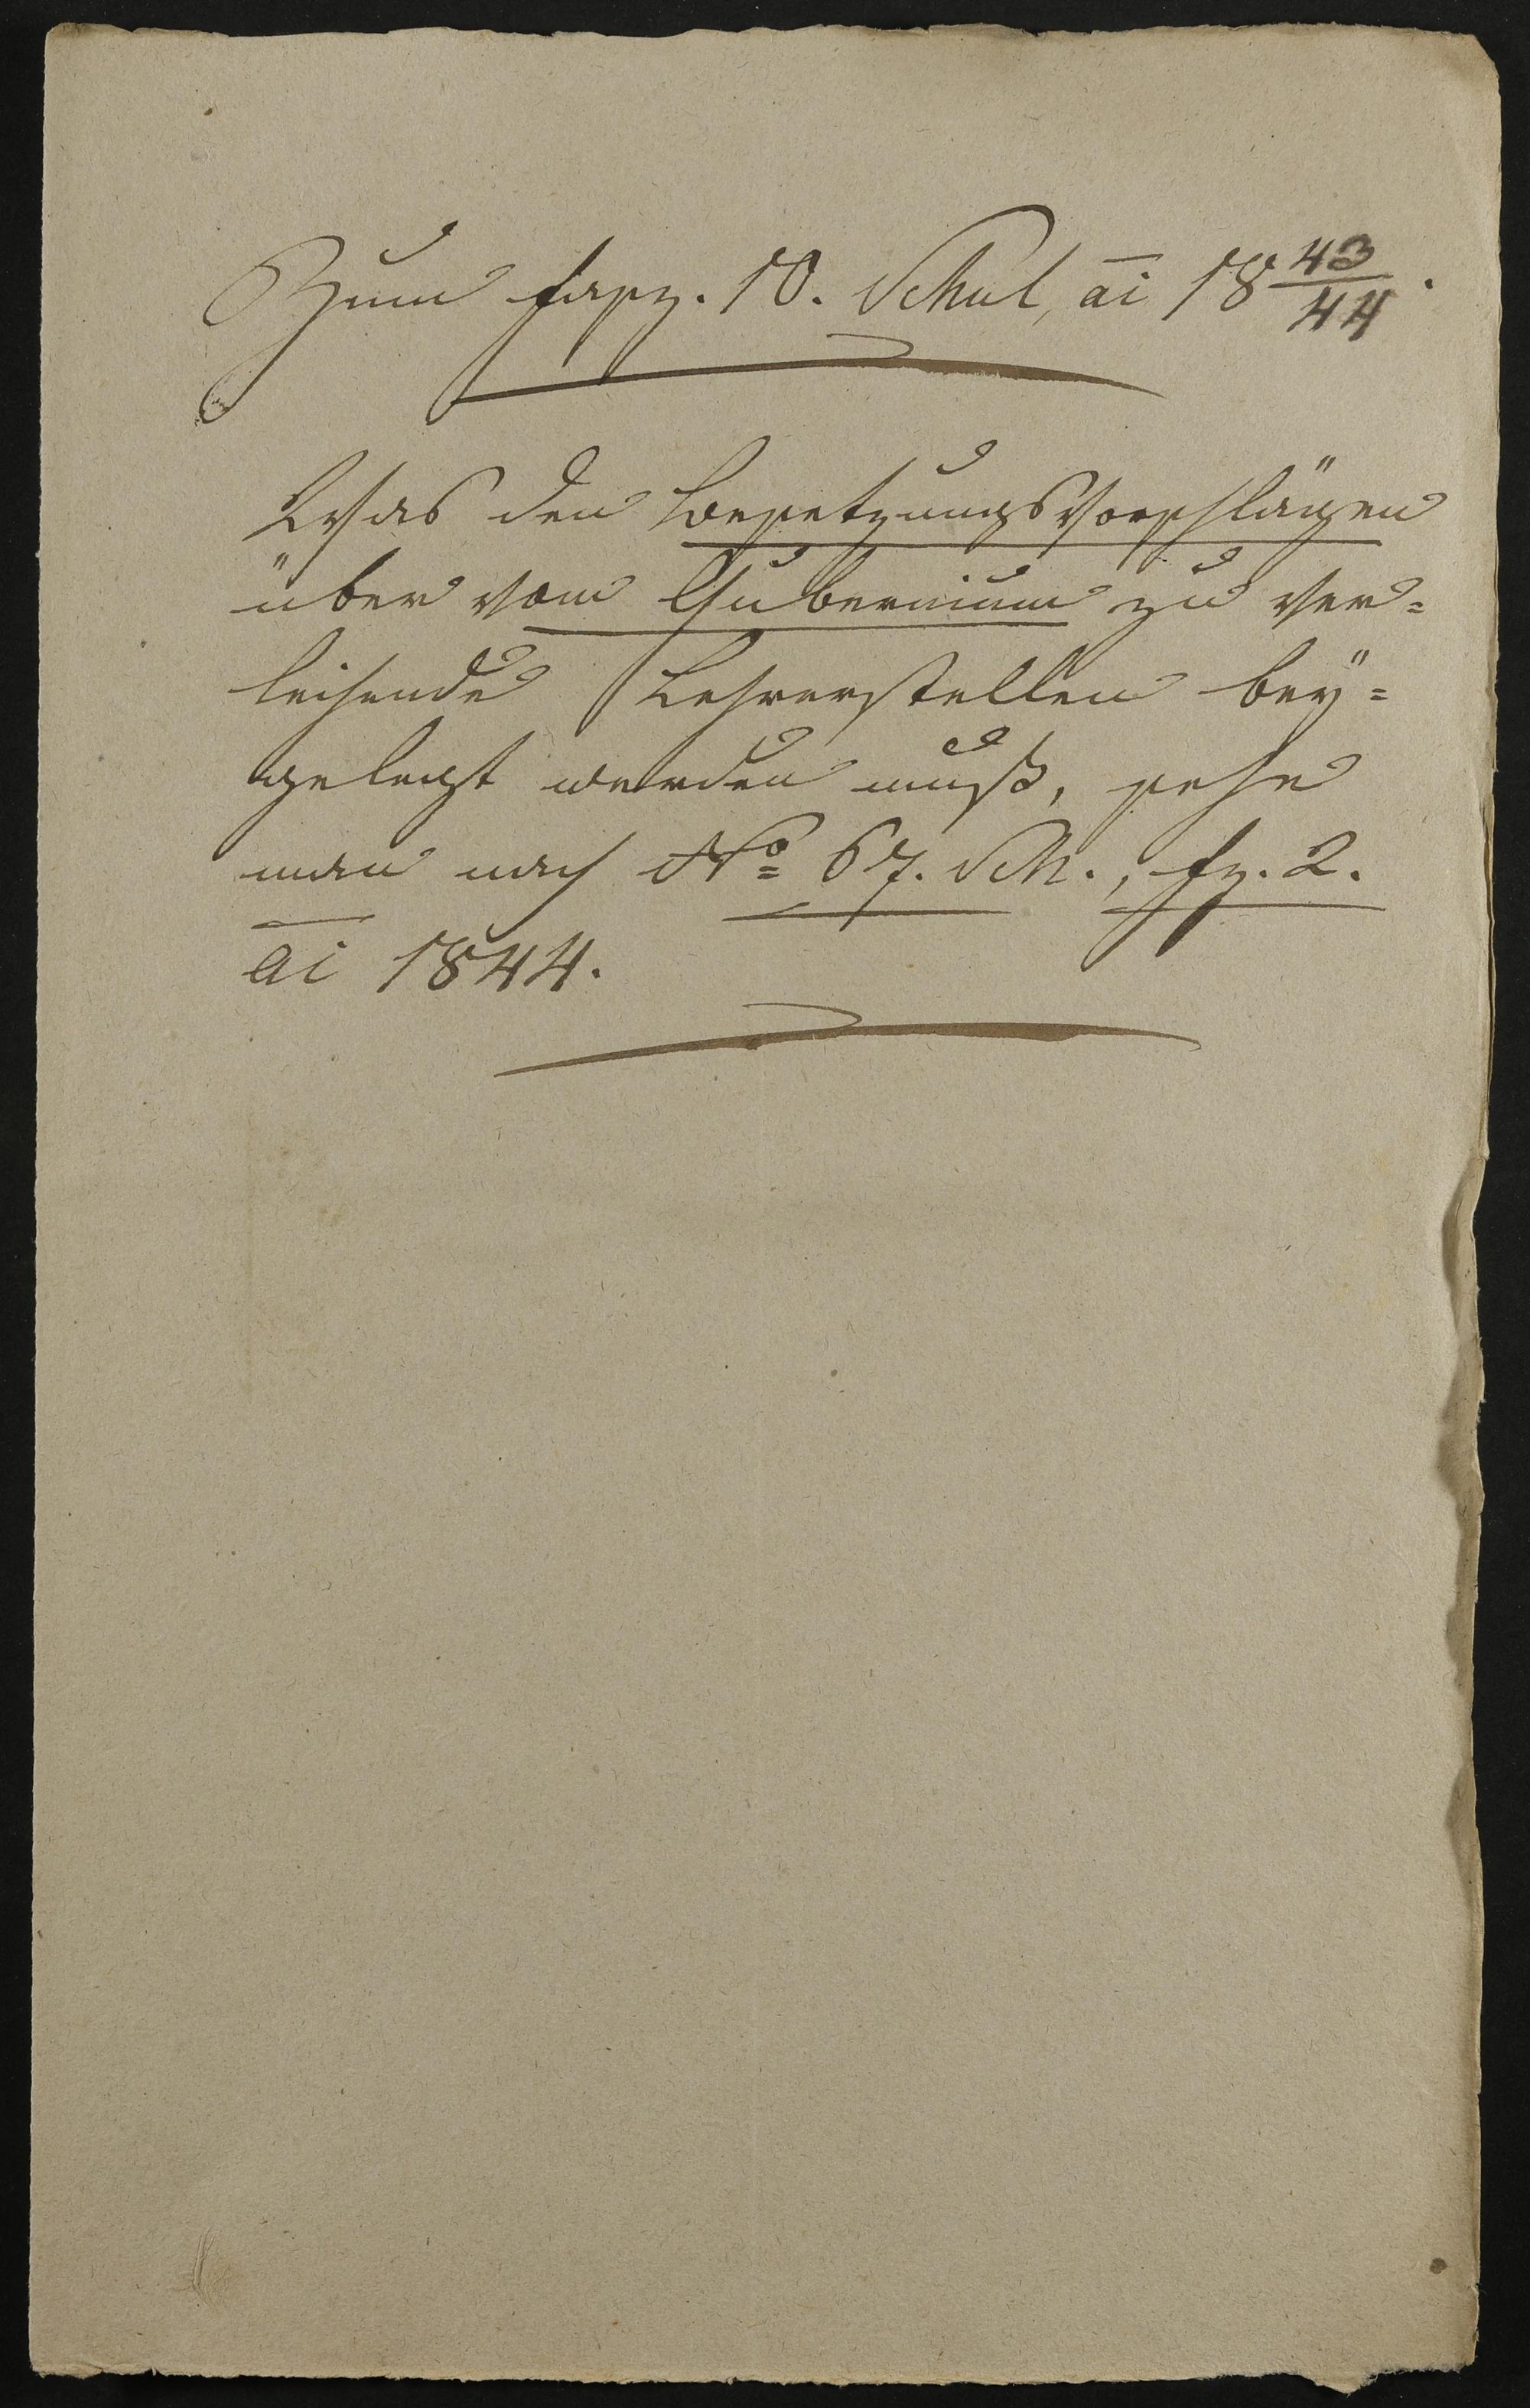 Zum Fasz. 10. Schul, ai 18 43/44.
Was den Besetzungsvorschlägen
über vom Gubernium zu ver=
leihende Lehrerstellen bey=
gelegt werden muß, sehe
man nach No 67. Sch., fz. 2.
ai 1844.